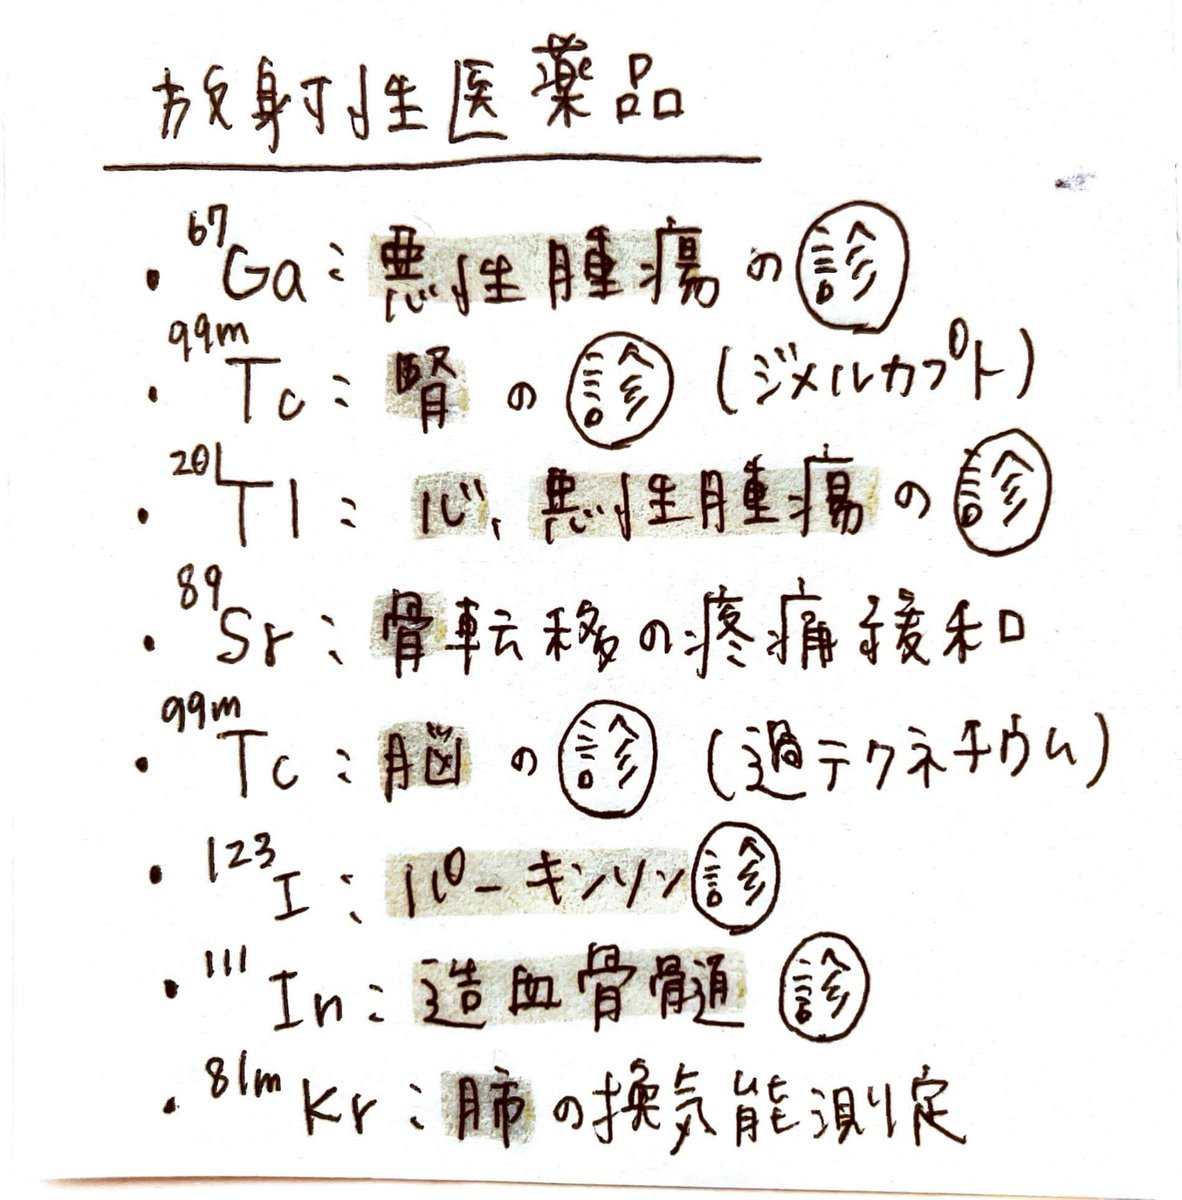 放射性医薬品
・67Ga:悪性腫瘍の診
・99mTc:腎の診(ジメルカプト)
・201Tl:心、悪性腫瘍の診
・89Sr:骨転移の疼痛緩和
・99mTc:脳の診(過テクネチウム)
・123I:パーキンソン診
・111In:造血骨髄診
・81mKr:肺の換気能測定